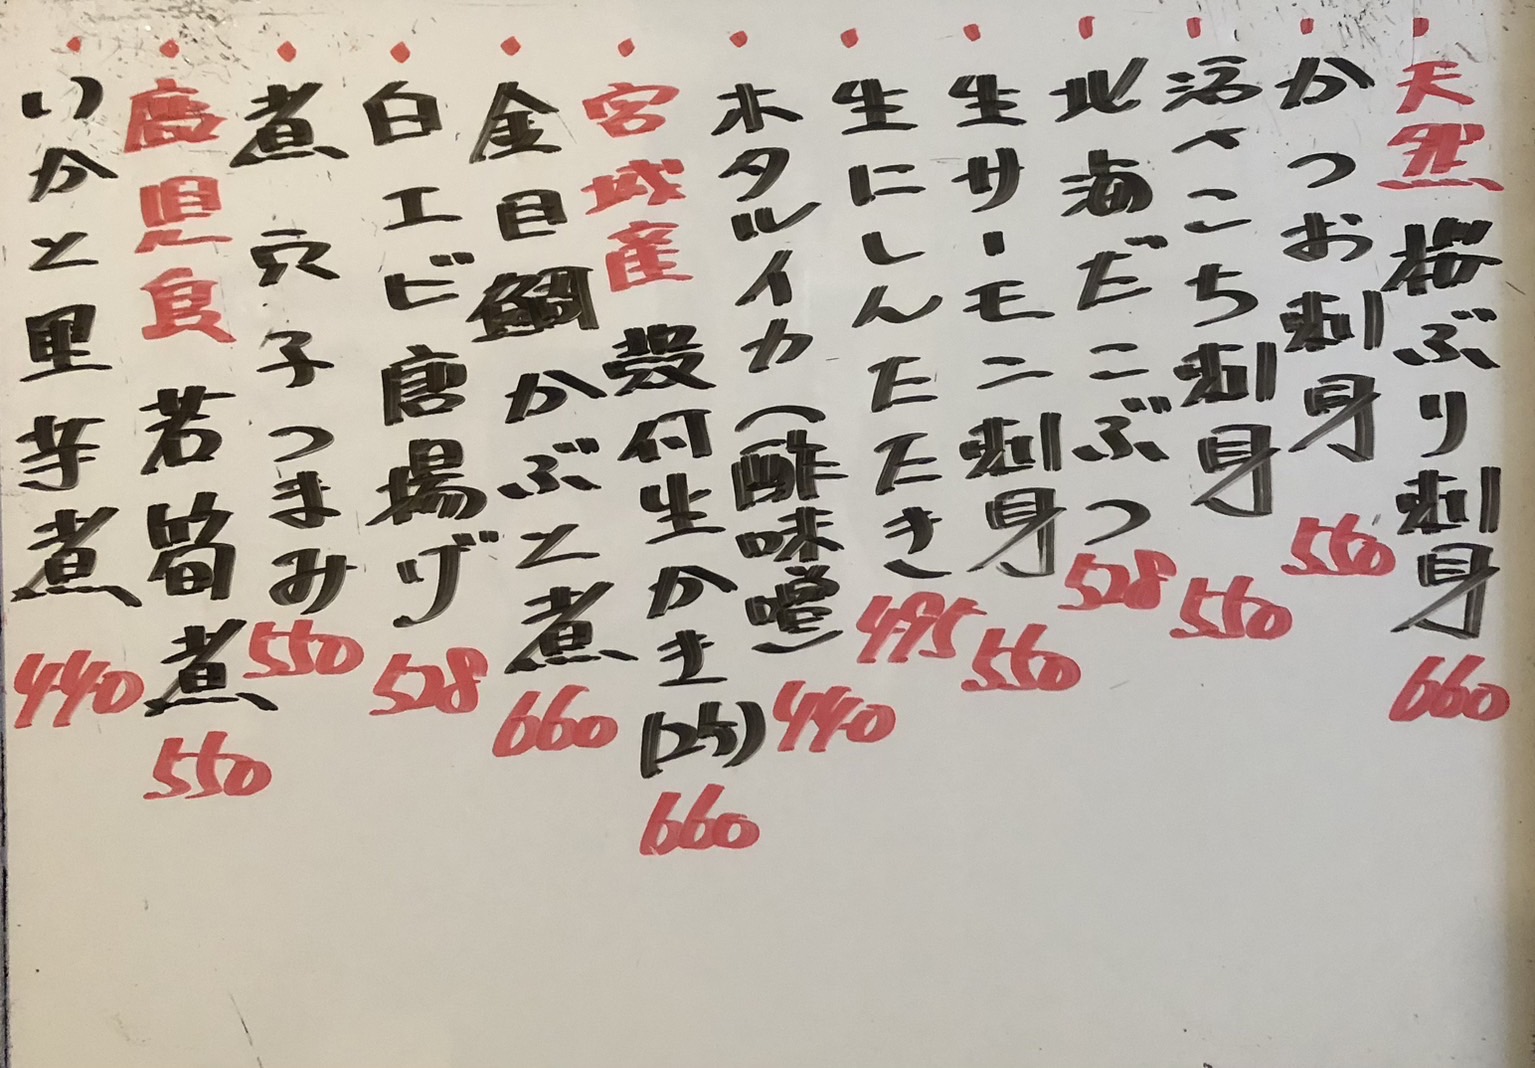 ・天然 桜ぶり刺身 660
・かつお刺身 550
・活〆こち刺身 550
・北海だこぶつ 528
・生サーモン刺身 550
・生にしんたたき 495
・ホタルイカ(酢味噌) 440
・宮城産 殻付生かき(2ケ) 660
・金目鯛かぶと煮 660
・白エビ唐揚げ 528
・煮穴子つまみ 550
・鹿児島 若筍煮 550
・いかと里芋煮 440